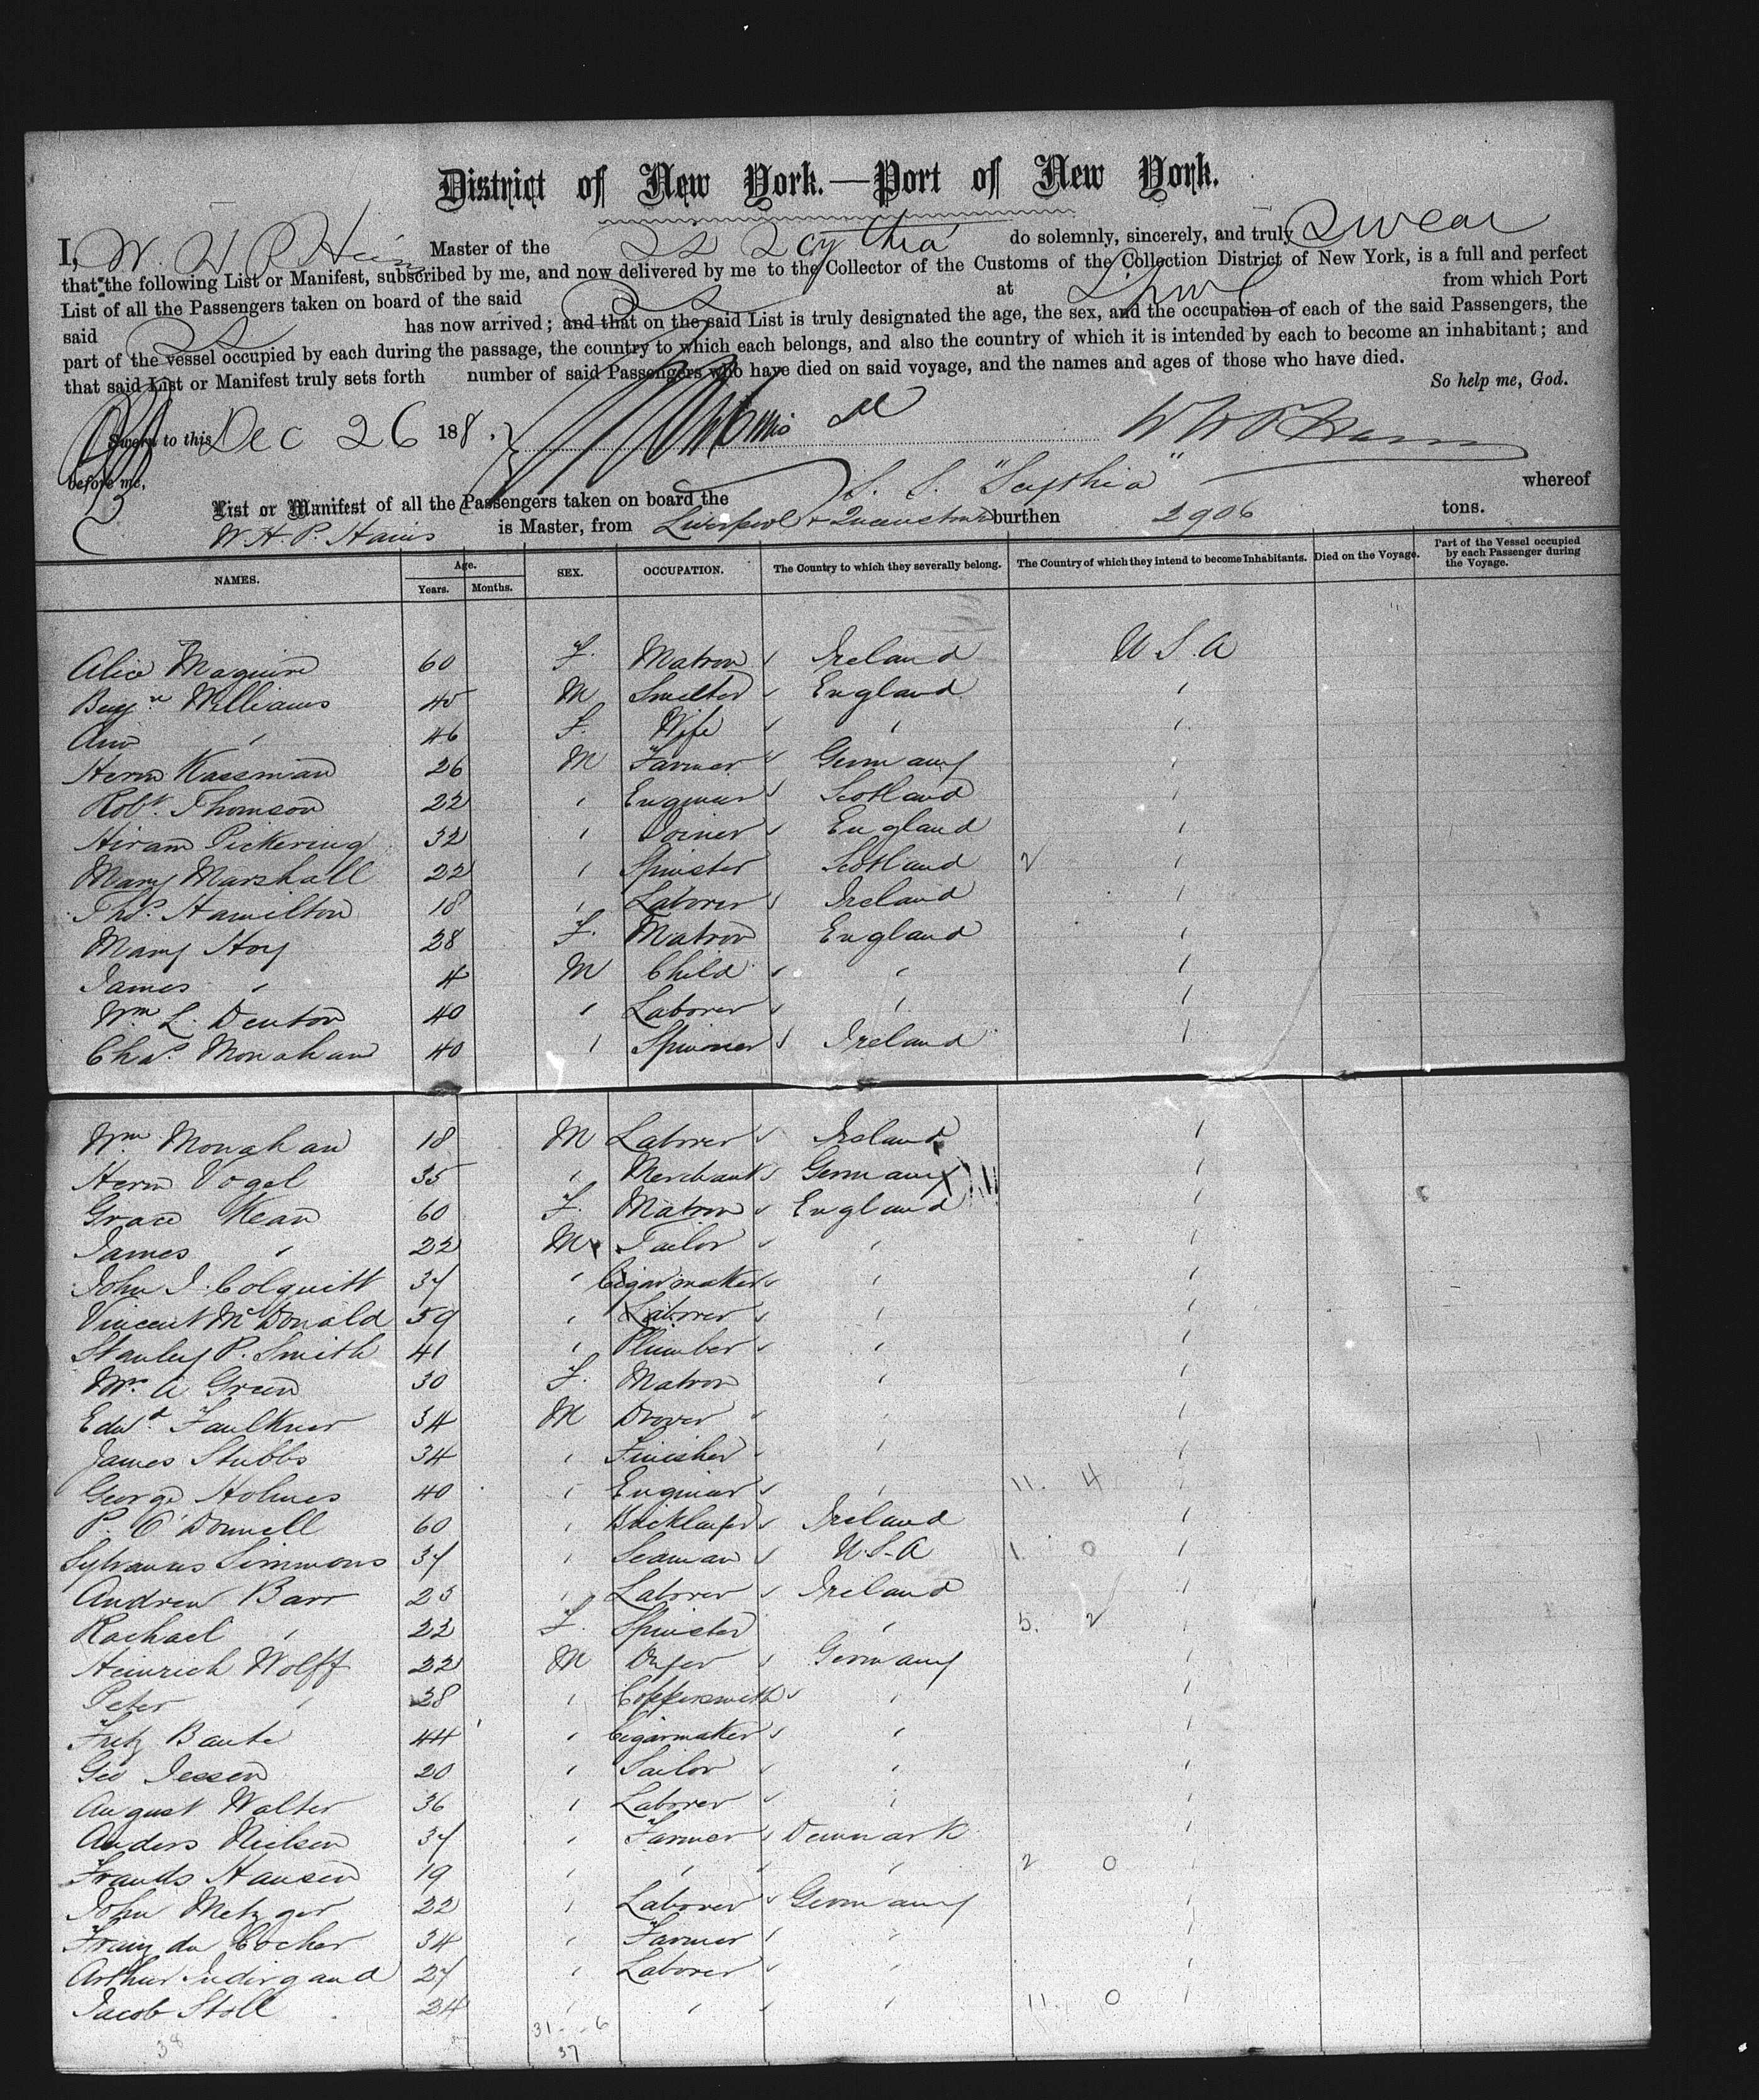 District of New York.—Port of New York.
I, W. H. P. Hains Master of the SS Scythia do solemnly, sincerely, and truly Swear
that the following List or Manifest, subscribed by me, and now delivered by me to the Collector of the Customs of the Collection District of New York, is a full and perfect
List of all the Passengers taken on board of the said SS at L'pool from which Port
said SS has now arrived; and that on the said List is truly designated the age, the sex, and the occupation of each of the said Passengers, the
part of the vessel occupied by each during the passage, the country to which each belongs, and also the country of which it is intended by each to become an inhabitant; and
that said List or Manifest truly sets forth number of said Passengers who have died on said voyage, and the names and ages of those who have died.
So help me, God.
Sworn to this Dec 26 188 . W H P Hains
before me,
List or Manifest of all the Passengers taken on board the S. S. "Scythia" whereof
W. H. P. Hains is Master, from Liverpool & Queenstown burthen 2906 tons.
NAMES. Age. Years. Months. SEX. OCCUPATION. The Country to which they severally belong. The Country of which they intend to become Inhabitants. Died on the Voyage. Part of the Vessel occupied by each Passenger during the Voyage.
Alice Maguire 60 F. Matron Ireland U S. A
Benjn Williams 45 M Smelter England "
Ann " 46 F. Wife " "
Herm Kassman 26 M Farmer Germany "
Robt. Thomson 22 " Engineer Scotland "
Hiram Pickering 32 " Joiner England "
Mary Marshall 22 " Spinster Scotland 2 "
Thos. Hamilton 18 " Laborer Ireland "
Mary Hoy 28 F. Matron England "
James " 4 M Child " "
Wm L. Denton 40 " Laborer " "
Chas. Monahan 40 " Spinner Ireland "
Wm Monahan 18 M Laborer Ireland "
Herm Vogel 35 " Merchant Germany "
Grace Kean 60 F. Matron England "
James " 22 M Tailor " "
John J. Colquitt 37 " Cigarmaker " "
Vincent McDonald 59 " Laborer " "
Stanley P. Smith 41 " Plumber " "
Mrs. A Green 30 F. Matron " "
Edwd. Faulkner 34 M Drover " "
James Stubbs 34 " Finisher " "
George Holmes 40 " Engineer " 11. 4 "
P. O'Donnell 60 " Bricklayer Ireland "
Sylvanus Simmons 37 " Seaman U.S.A 1. 0 "
Andrew Barr 25 " Laborer Ireland "
Rachael " 22 F. Spinster " 5. 2 "
Heinrich Wolff 22 M Dyer Germany "
Peter " 28 " Coppersmith " "
Fritz Baute 44 " Cigarmaker " "
Geo Jessen 20 " Sailor " "
August Walter 36 " Laborer " "
Anders Nielsen 37 " Farmer Denmark "
Frands Hansen 19 " " " 2 0 "
John Metzger 22 " Laborer Germany "
Franz de Cocker 34 " Farmer " "
Arthur Indergand 27 " Laborer " "
Jacob Stoll 24 " " " 11. 0 "
38 31 - 6
37